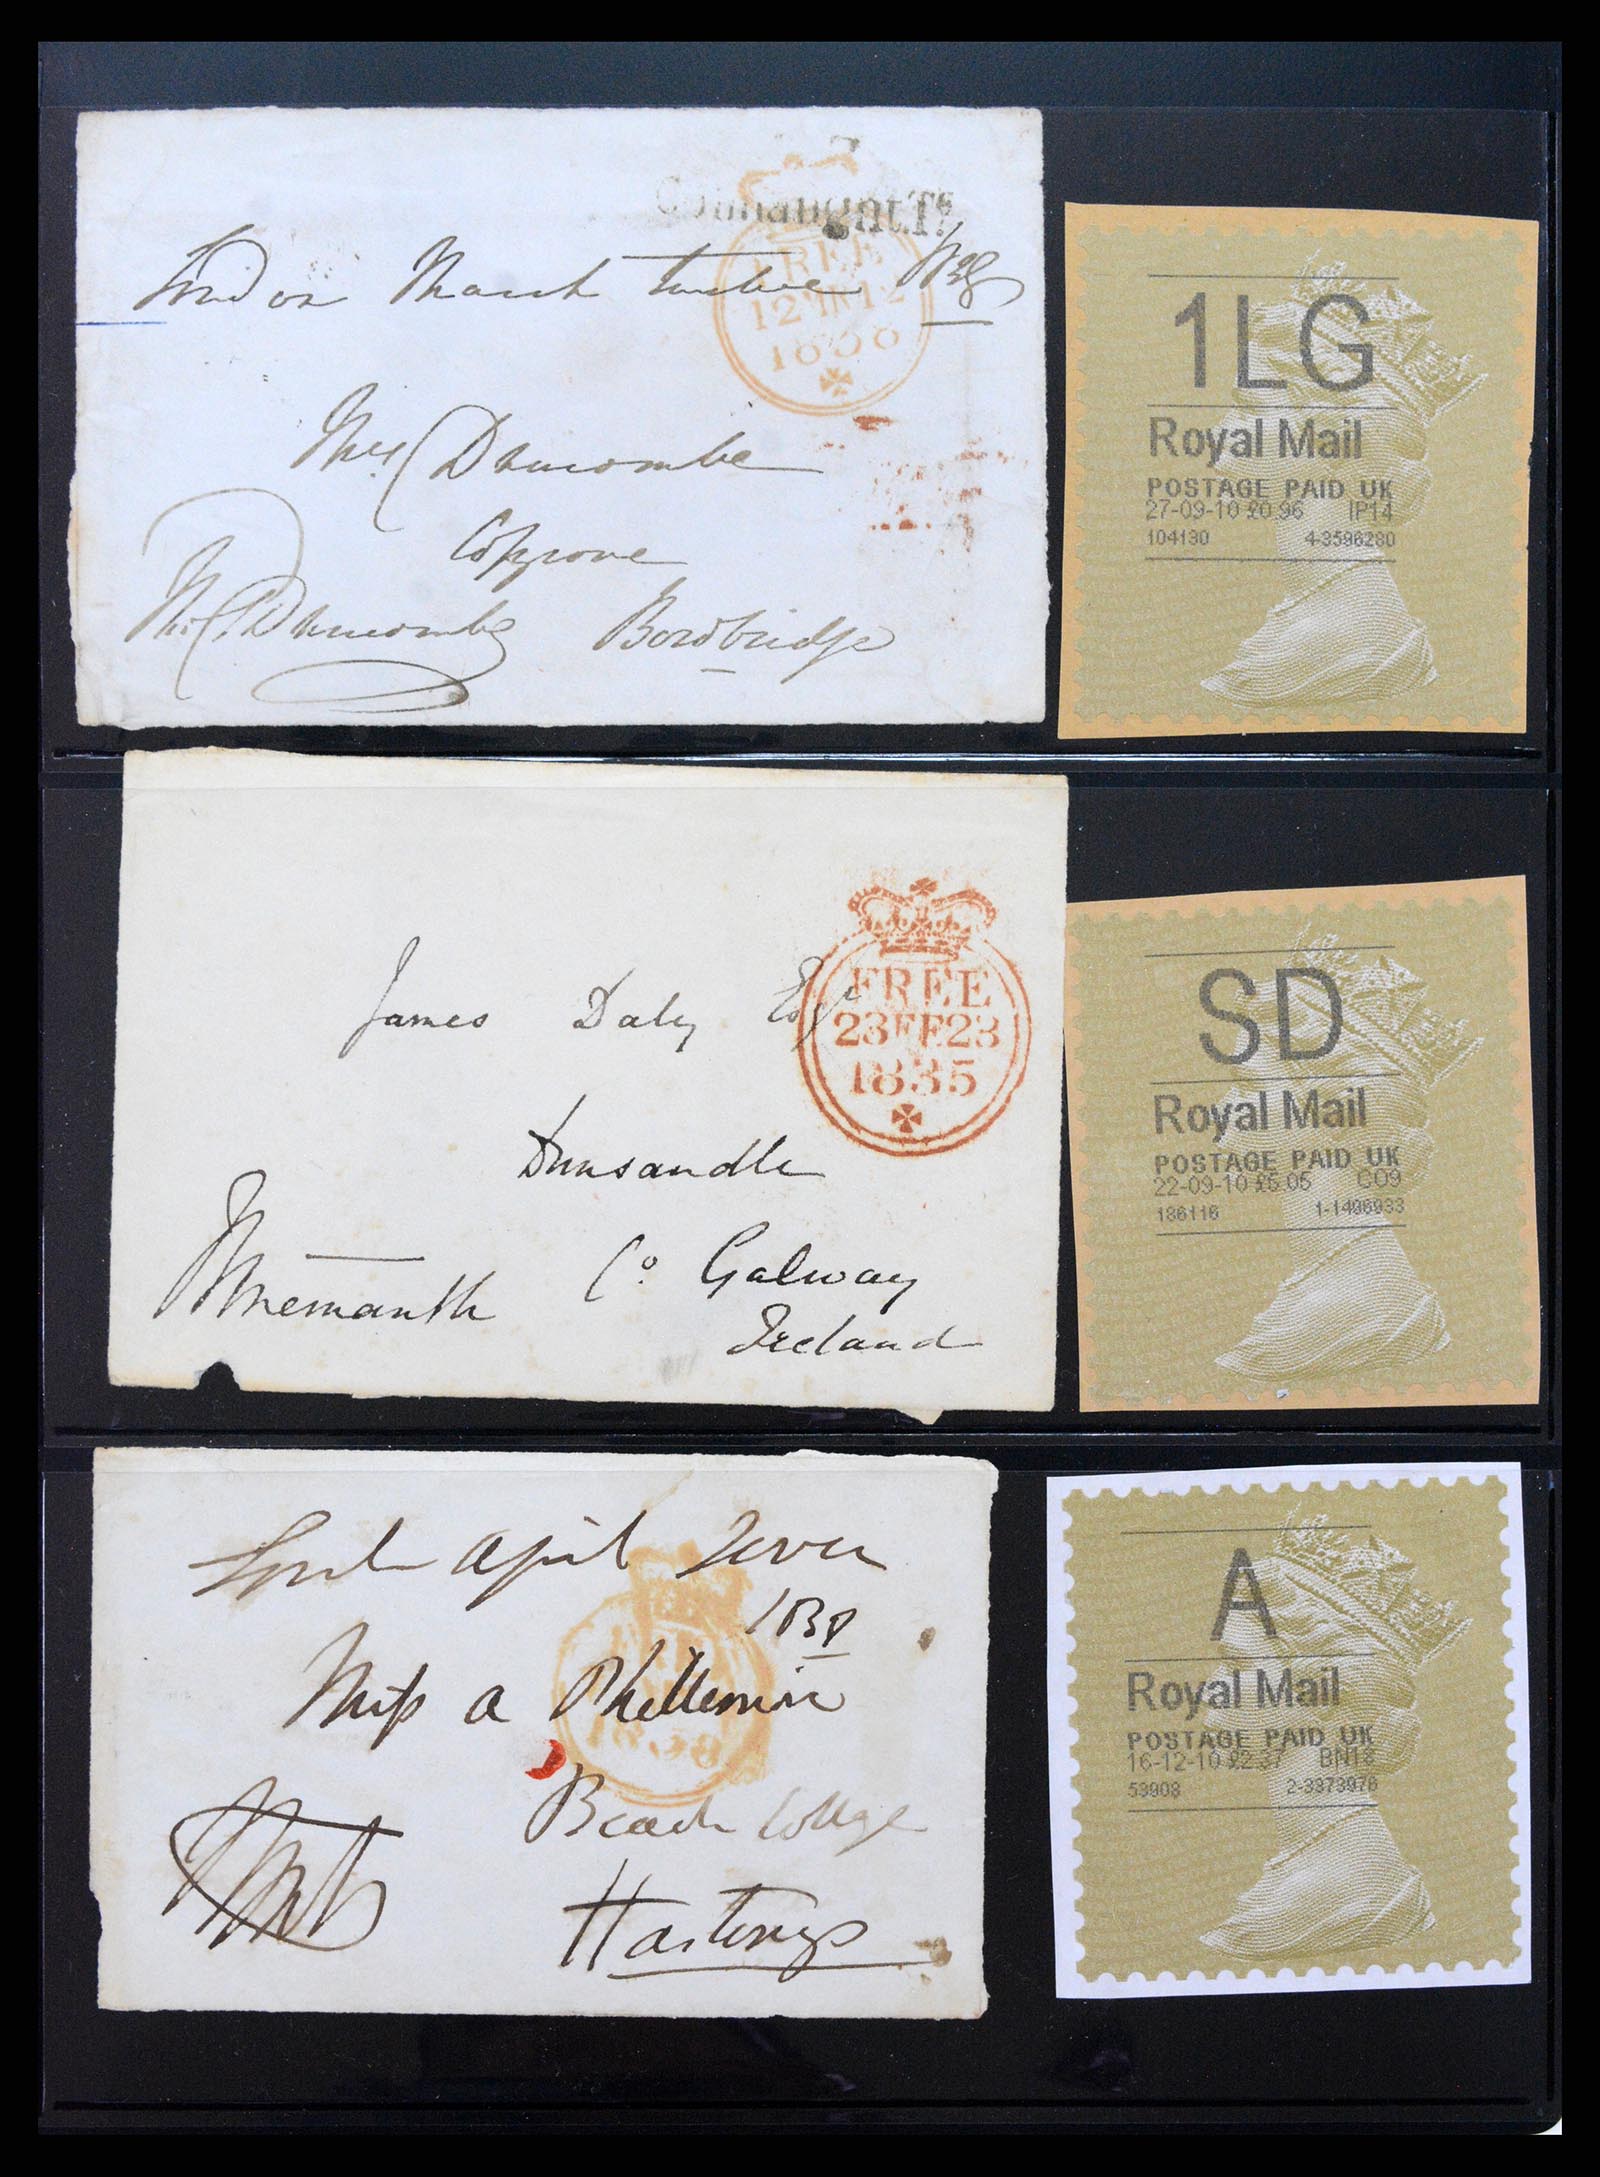 Connaught.Tº
London March twelve 1838
FREE
12MR12
1838
Mrs Duncombe
Copgrove
Boro'bridge
1LG
Royal Mail
POSTAGE PAID UK
27-09-10 £0.96 IP14
104130 4-3596280
James Daly Esqr
FREE
23FE23
1835
Dunsandle
Co. Galway
Ireland
SD
Royal Mail
POSTAGE PAID UK
22-09-10 £5.05 CO9
186116 1-1496933
April Seven
1838
Miss A
1838
Beach Cottage
Hastings
A
Royal Mail
POSTAGE PAID UK
16-12-10 £2.37 BN18
53908 2-3373976